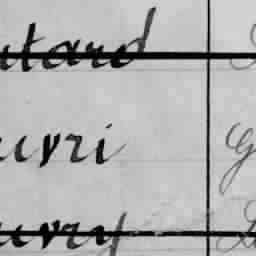 utard
uvri
uvry